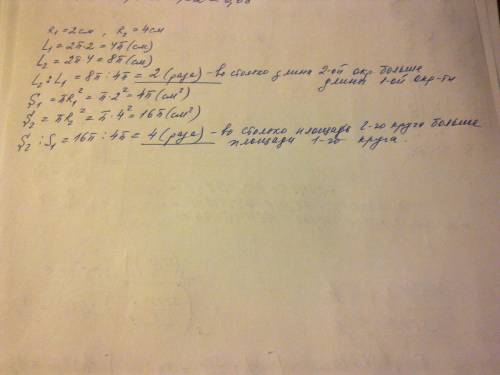 R₁=2см, R₂=4см
L₁=2π·2=4π(см)
L₂=2π·4=8π(см)
L₂:L₁=8π:4π=2(раза)-во столько длина 2-ой окр. больше
длины 1-ой окр-ти
S₁=πR₁²=π·2²=4π(см²)
S₂=πR₂²=π·4²=16π(см²)
S₂:S₁=16π:4π=4(раза)-во столько площадь 2-го круга больше
площади 1-го круга.